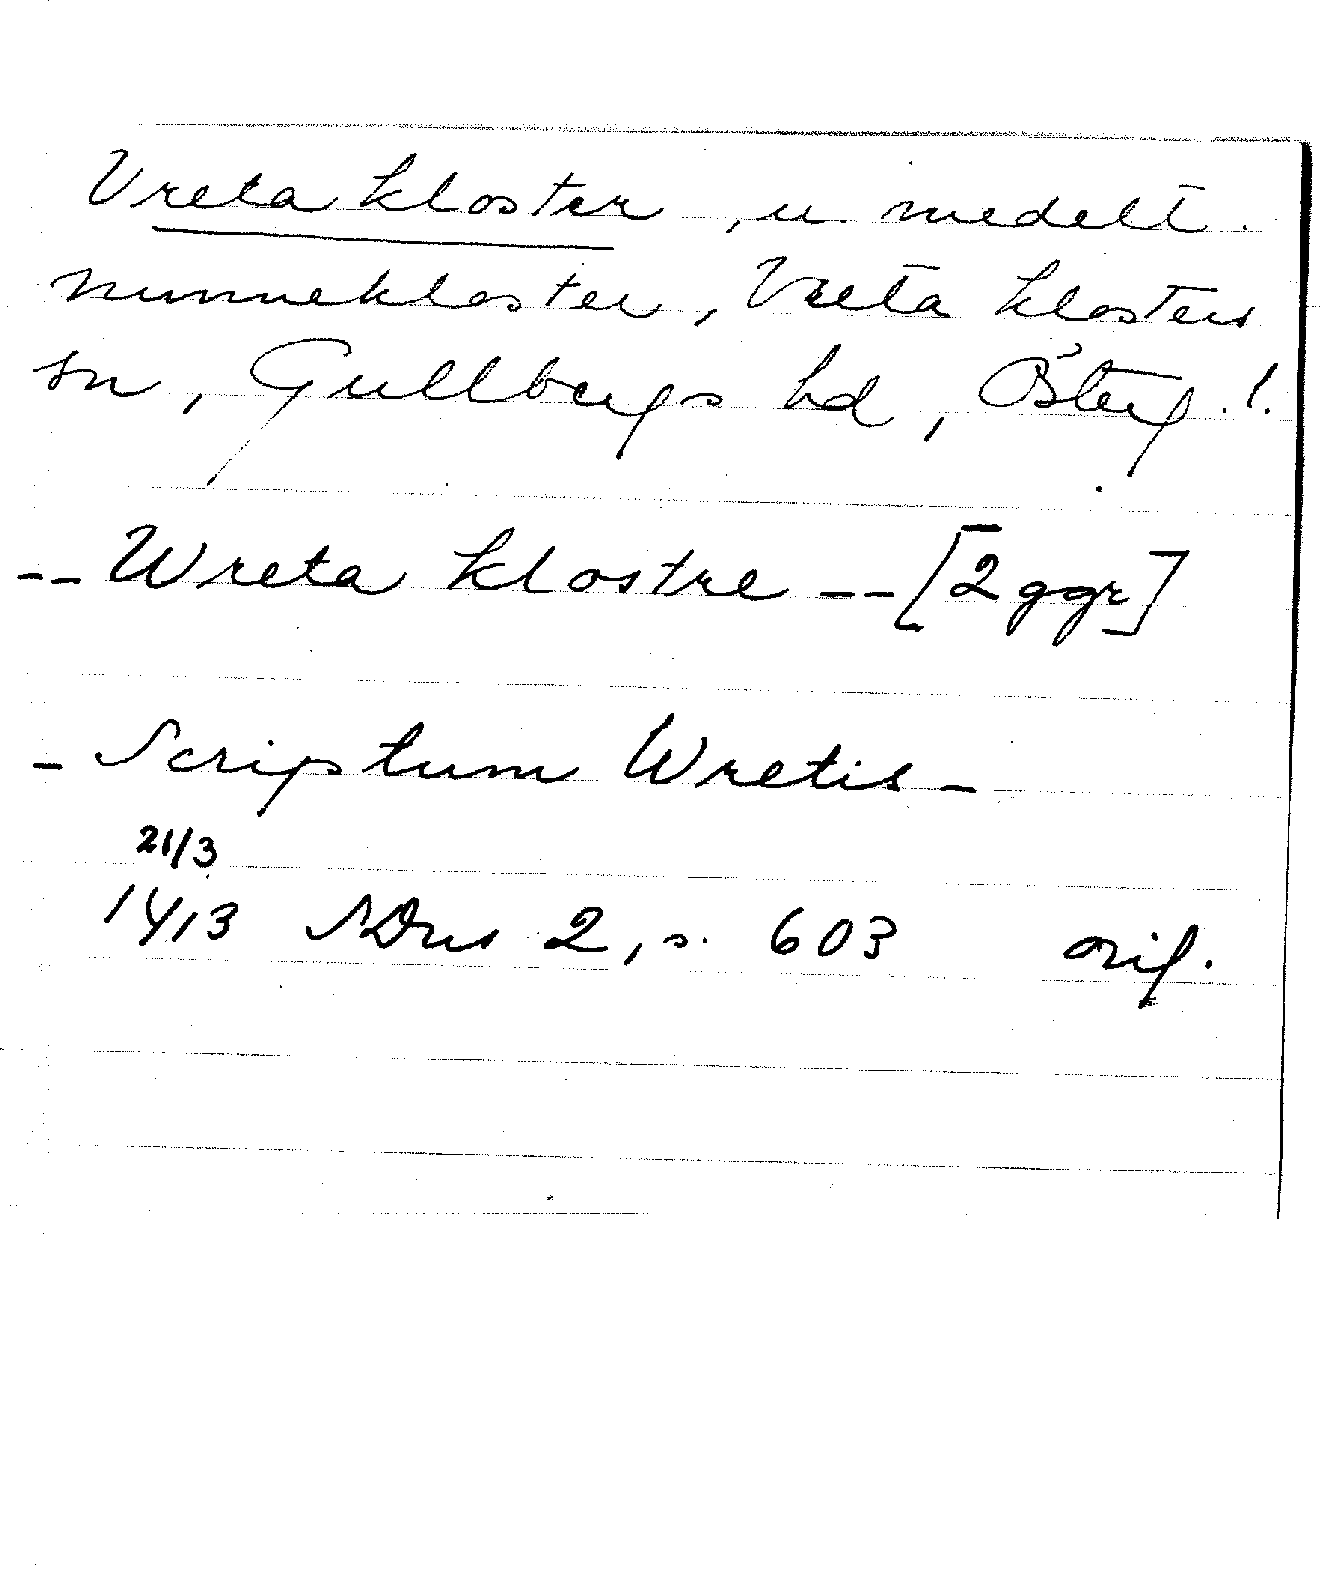 Vreta kloster, u. medelt.
nunnekloster, Vreta klosters
sn, Gullbergs hd, Österg. l.
-- Wreta klostre -- [2 ggr]
- Scriptum Wretis -
21/3
1413 SDns 2, s. 603 orig.